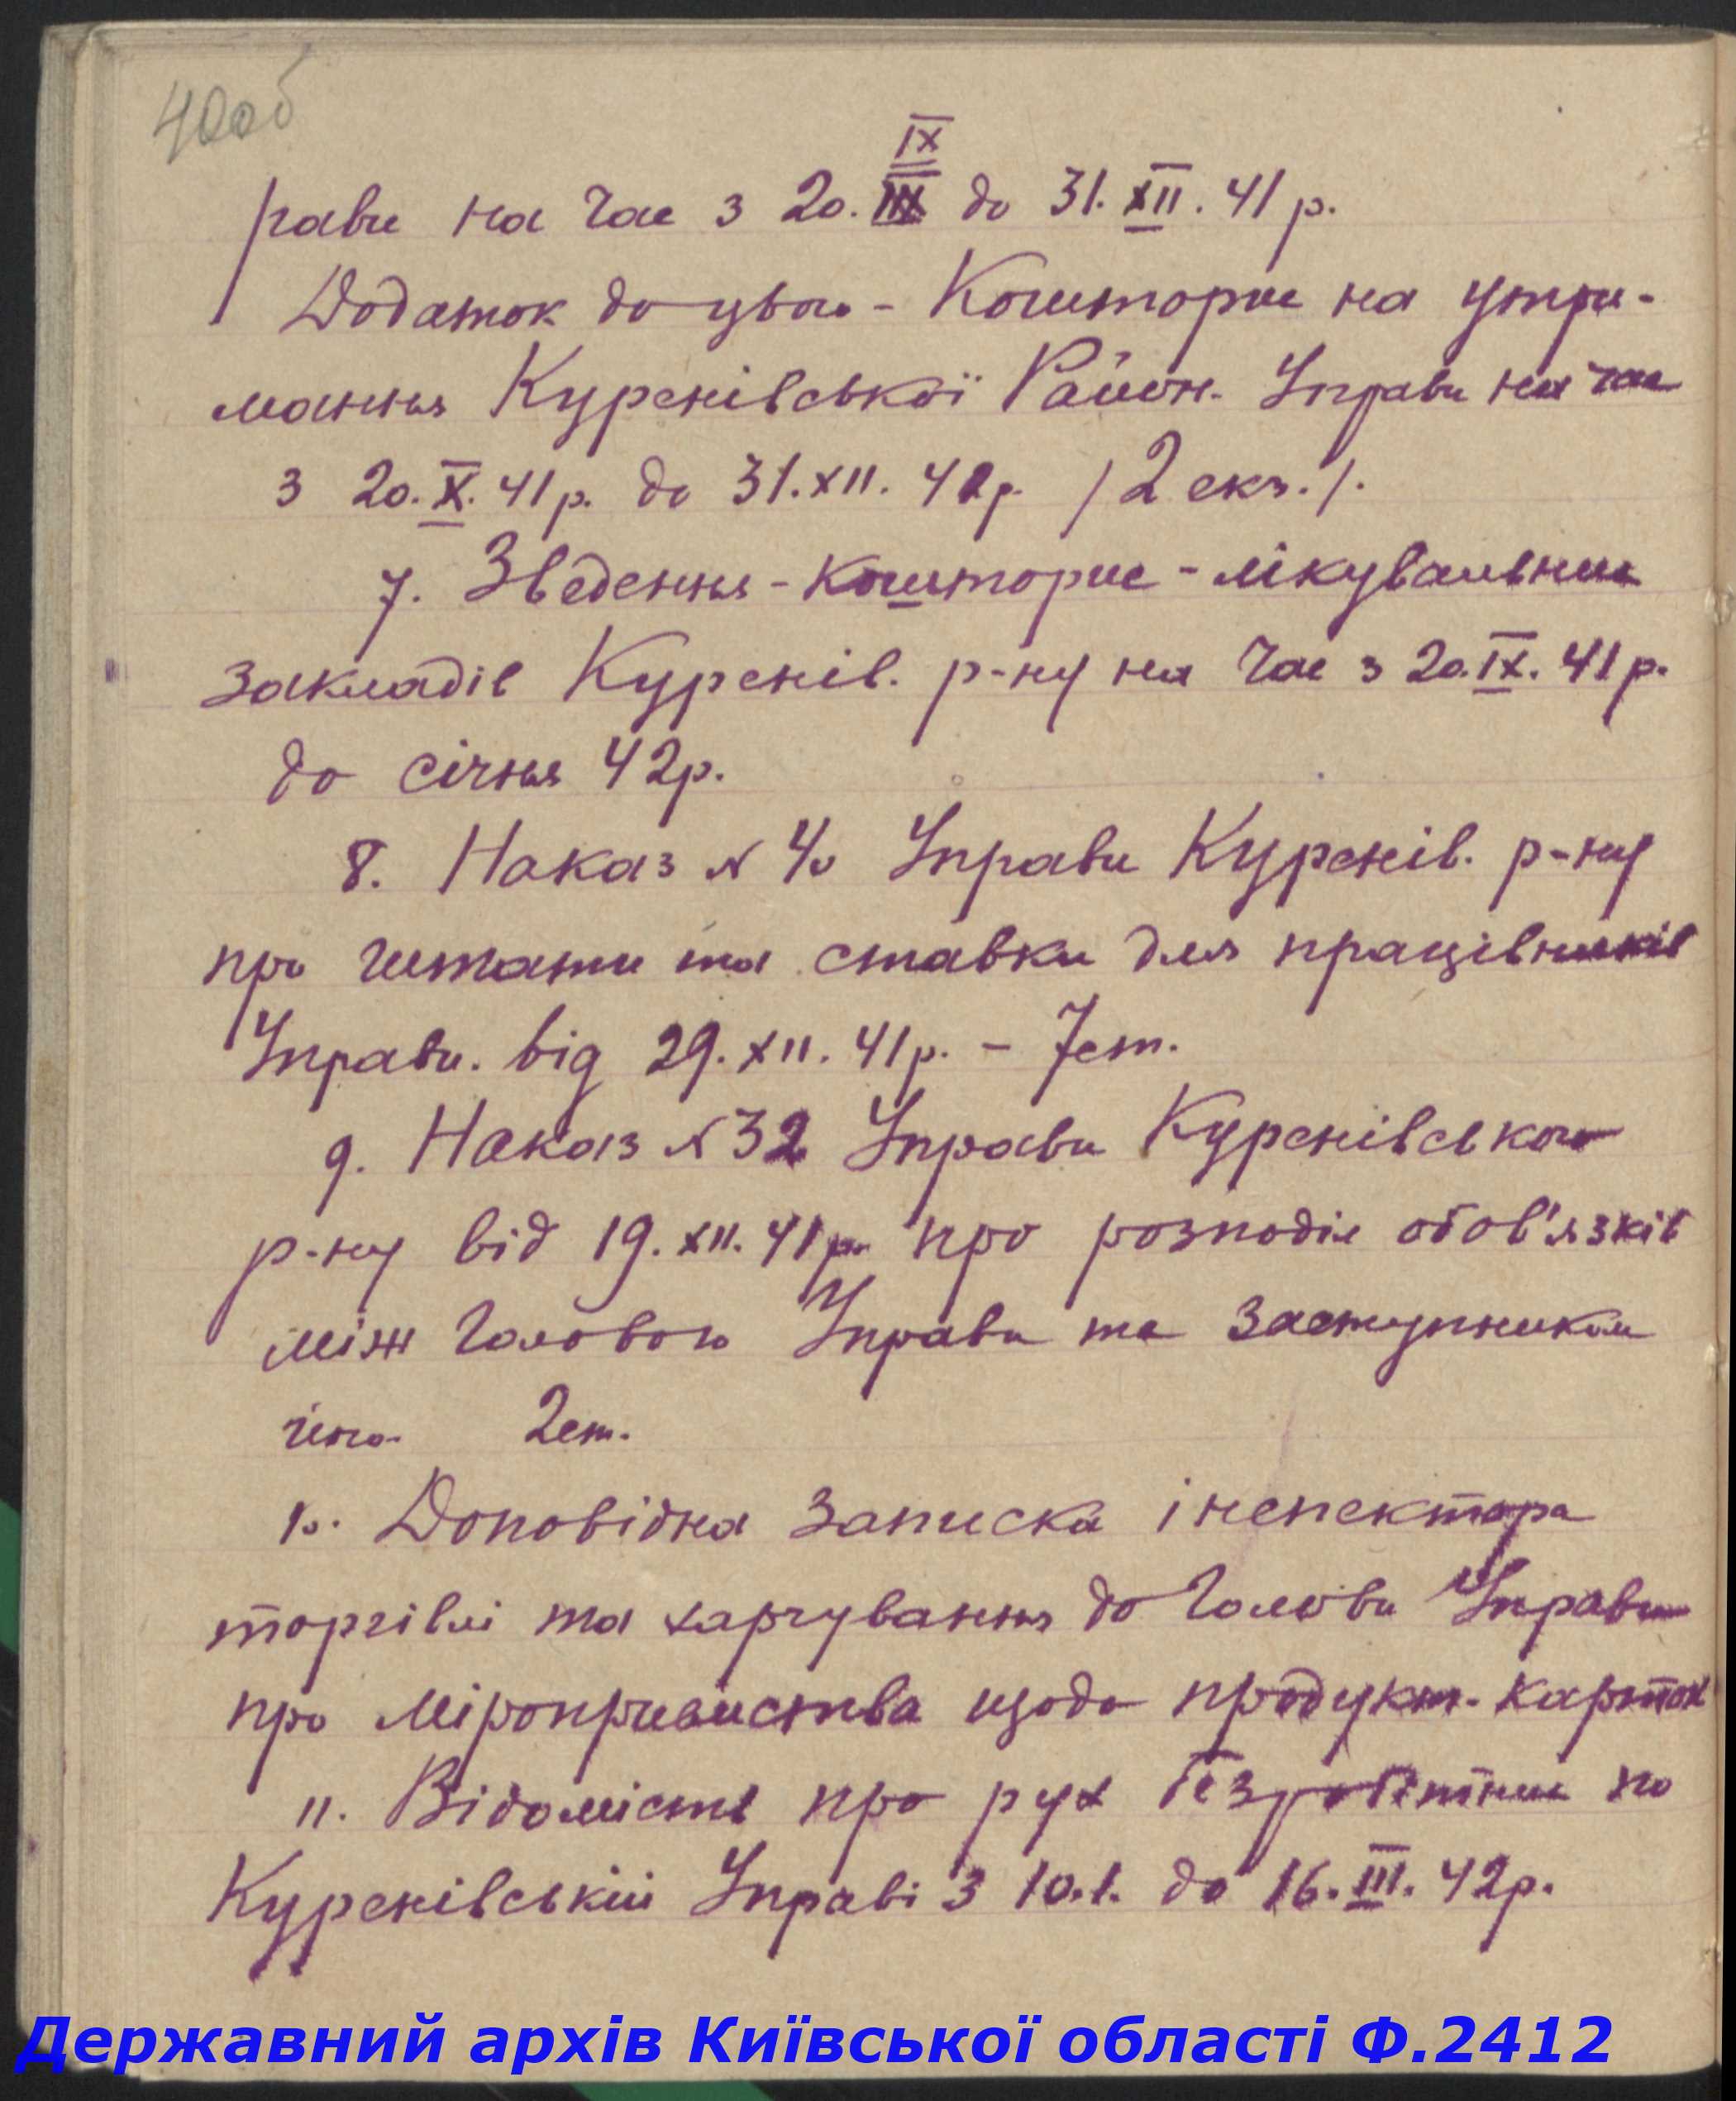 40об
IX
рави на час з 20. до 31. XII. 41 р.
Додаток до цього - Кошторис на утри-
мання Куренівської Район. Управи на час
з 20. X. 41 р. до 31. XII. 42 р. / 2 екз. /.
7. Зведення - кошторис - лікувальних
закладів Куренів. р-ну на час з 20. IX. 41 р.
до січня 42 р.
8. Наказ № 40 Управи Куренів. р-ну
про штати та ставки для працівників
Управи. від 29. XII. 41 р. - 7 ст.
9. Наказ № 32 Управи Куренівського
р-ну від 19. XII. 41 р. про розподіл обов'язків
між Головою Управи та Заступником
його. 2 ст.
10. Доповідна Записка інспектора
торгівлі та харчування до Голови Управи
про Міроприємства щодо продукт. карток
11. Відомість про рух безробітних по
Куренівській Управі з 10. 1. до 16. III. 42 р.
Державний архів Київської області Ф.2412